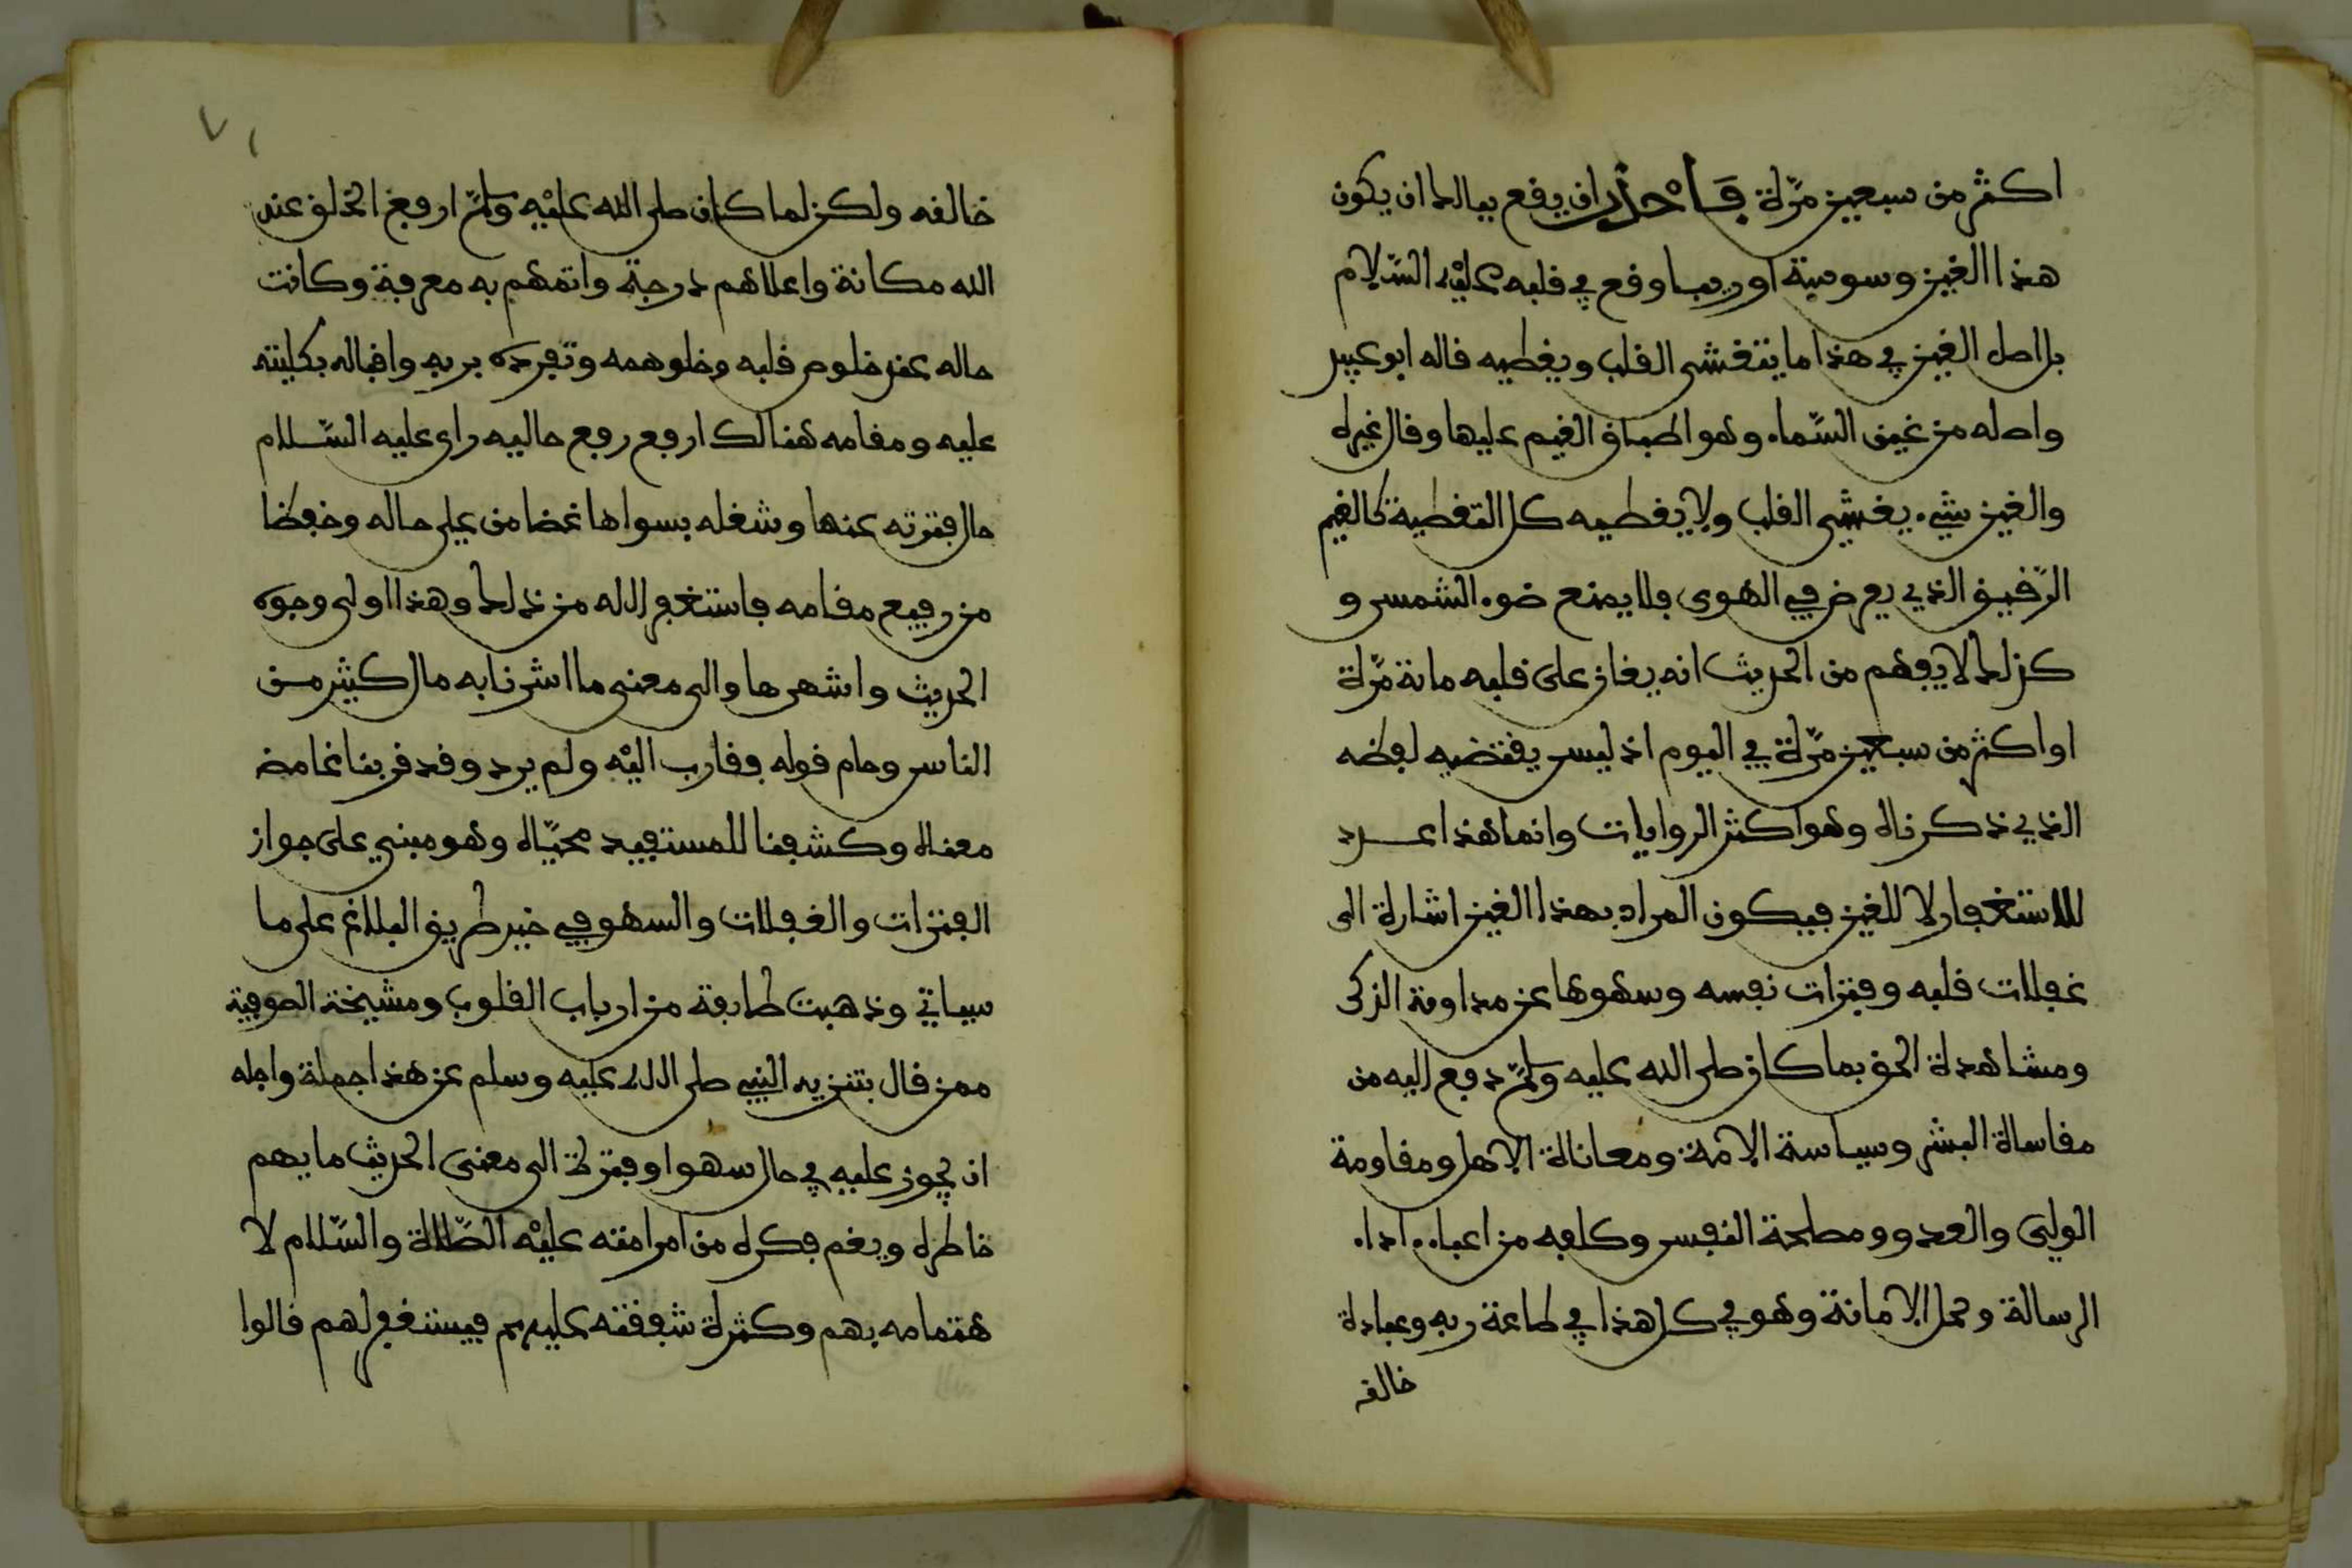 اكثر من سبعين مرة فاحذر ان يقع ببالك ان يكون
هذا الغين وسوسة او ريبا وقع في قلبه عليه السلام
بل اصل الغين في هذا ما يتغشى القلب ويغطيه قاله ابو عبيد
واصله من غين السماء وهو اطباق الغيم عليها وقال غيره
والغين شيء يغشي القلب ولا يغطيه كل التغطية كالغيم
الرقيق الذي يعرض في الهوى فلا يمنع ضوء الشمس و
كذلك لا يفهم من الحديث انه يغان على قلبه مائة مرة
او اكثر من سبعين مرة في اليوم اذ ليس يقتضيه لفظه
الذي ذكرناه وهو اكثر الروايات وانما هذا عدد
للاستغفار لا للغين فيكون المراد بهذا الغين اشارة الى
غفلات قلبه وفترات نفسه وسهوها عن مداومة الذكر
ومشاهدة الحق بما كان صلى الله عليه وسلم دفع اليه من
مقاساة البشر وسياسة الامة ومعاناة الاهل ومقاومة
الولي والعدو ومصلحة النفس وكلفه من اعباء اداء
الرسالة وحمل الامانة وهو في كل هذا في طاعة ربه وعبادة
خالقه
٧١
خالقه ولكن لما كان صلى الله عليه وسلم ارفع الخلق عند
الله مكانة واعلاهم درجة واتمهم به معرفة وكانت
حاله عند خلوص قلبه وخلو همه وتفرده بربه واقباله بكليته
عليه ومقامه هنالك ارفع رفع حاليه راى عليه السلام
حال فترته عنها وشغله بسواها غضا من علي حاله وخفضا
من رفيع مقامه فاستغفر الله من ذلك وهذا اولى وجوه
الحديث واشهرها والى معنى ما اشرنا به مال كثير من
الناس وحام قوله فقارب اليه ولم يرد وقد قربنا غامض
معناه وكشفنا للمستفيد محياه وهو مبني على جواز
الفترات والغفلات والسهو في غير طريق البلاغ على ما
سياتي وذهبت طايفة من ارباب القلوب ومشيخة الصوفية
ممن قال بتنزيه النبي صلى الله عليه وسلم عن هذا جملة واجله
ان يجوز عليه في حال سهو او فترة الى معنى الحديث ما يهم
خاطره ويغم فكره من امر امته عليه الصلاة والسلام لا
هتمامه بهم وكثرة شفقته عليهم فيستغفر لهم قالوا